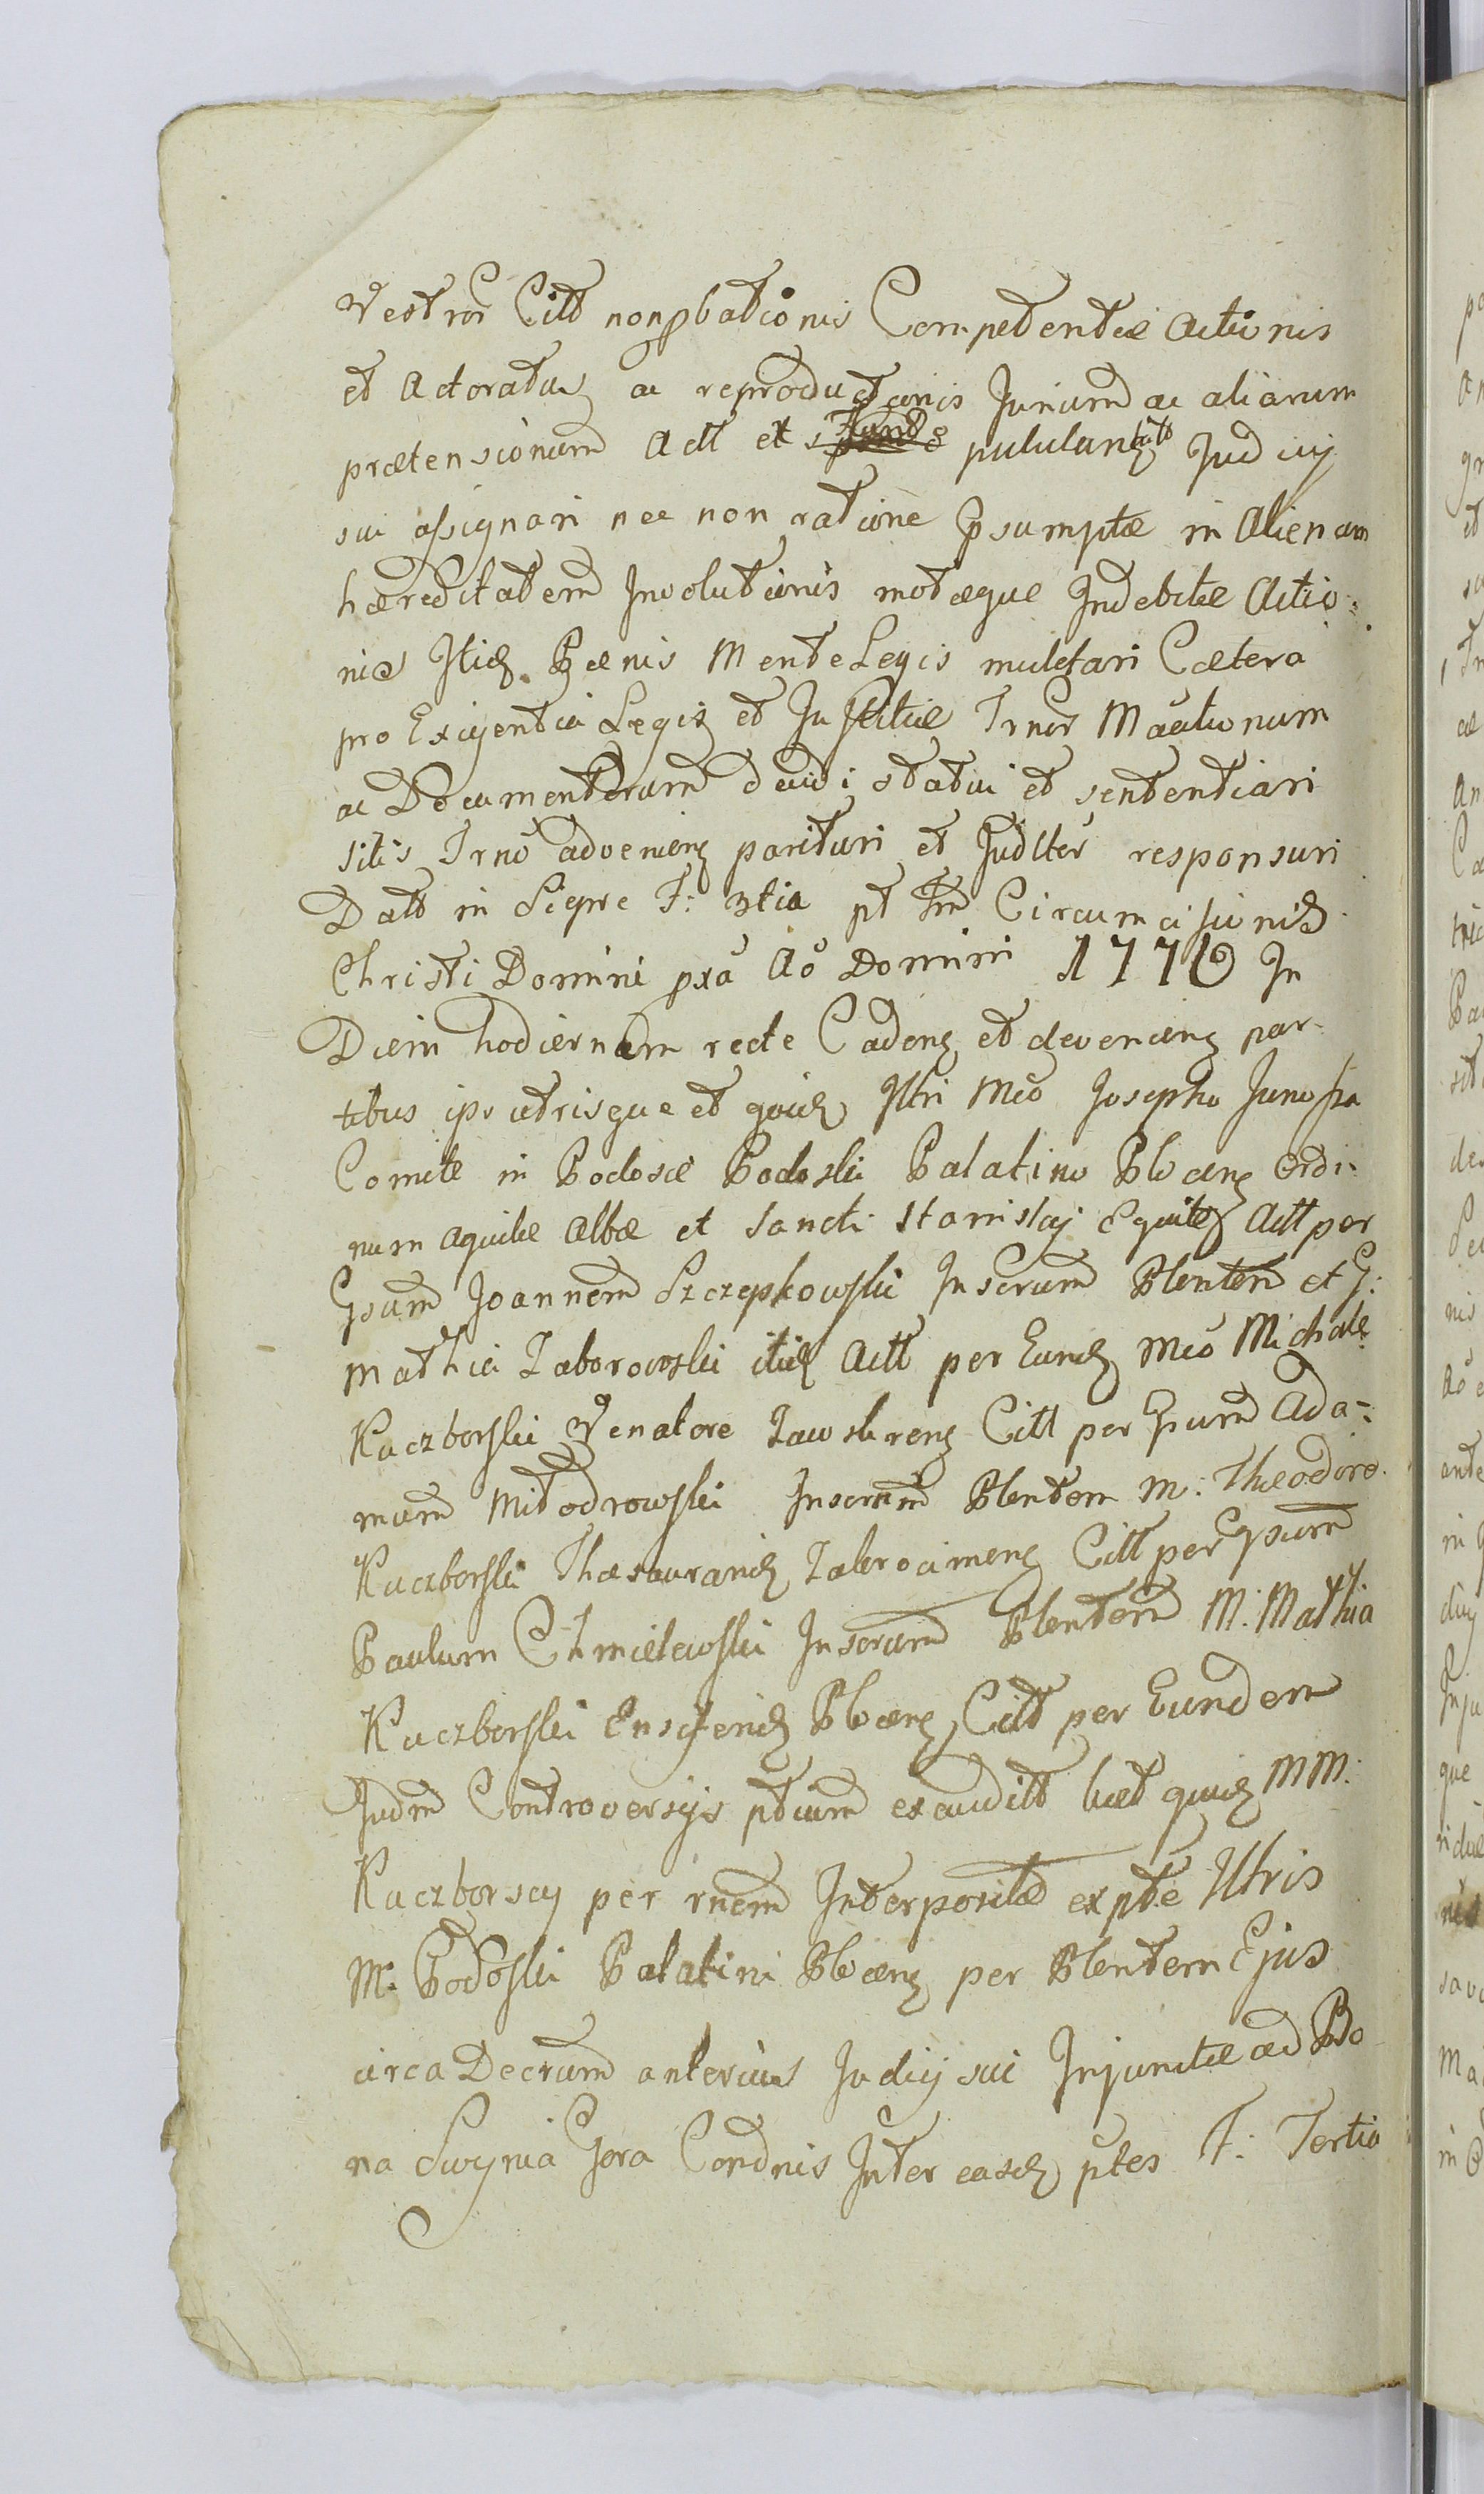 Vestror Citt nonpbationis Competentiæ Actionis
et Actoratus ac reproductionis Jurium ac aliarum
prætensionum Act et pululant Judicij
sui assignari nec non ratione Assumptæ in Alienam
hæreditatem Involutionis motæque Indebitæ Actio:
nis Itid. Pænis Mente Legis mulctari Cætera
pro Exigentia Legis et Justitiæ Trnor Mautionum
ac Documentorum decidi statui et sententiari
sitis Trno advenien parituri et Judlter responsuri
Datt in Sierpc F: 3tia pt Fm Circumcisionis
Christi Domini pxa Ao Domini 1776 In
Diem hodiernam recte Caden et devenien par
tibus ipsis utrisque et quid Illri Mco Josepho Junosza
Comite in Podosie Podoski Palatino Plocen Ordi:
num Aquilæ Albæ et Sancti Stanislaj Equite Act per
Gsum Joannem Szczepkowski Juserum Plenten et G:
Mathia Zaborowski itid Act per Eund Mco Michale
Kuczborski Venatore Zawskrens Citt per Gsum Ada-:
mum Modrowski Inserum Plentem M: Theodoro
Kuczborski Thesauranid Zakrocimens Citt per Gsum
Paulum Chmielewski Inserum Plentem M: Mathia
Kuczborski Ensiferid Plocen Citt per Eundem
Judm Controversijs ptium exauditt licet quid MM:
Kuczborscy per rnem Interpositæ expte Illris
M: Podoski Palatini Plocen per Plentem Ejus
circa Decrum anterius Judicij sui Injunctæ ad Bo
na Swynia Gora Condnis Inter easd ptes F: Tertia